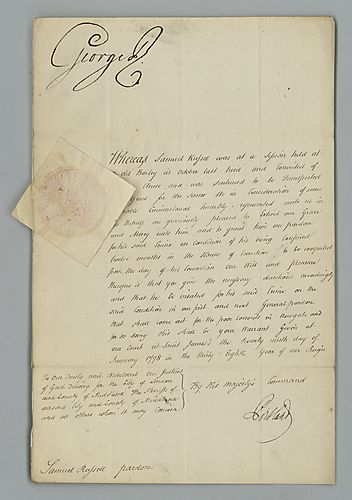 George R
Whereas Samuel Russell was at a Session held at
Old Bailey in October last tried and Convicted of
and was Sentenced to be Transported
years for the Same We in Consideration of some
Circumstances humbly represented unto us in
Behalf are graciously pleased to Extend our Grace
and Mercy unto him and to grant him our pardon
for his said Crime on Condition of his being Confined
twelve months in the House of Correction to be computed
from the day of his Conviction Our Will and pleasure
therefore is that you give the necessary directions accordingly
and that he be inserted for his said Crime on the
said Condition in our first and next General pardon
that shall come out for the poor convicts in Newgate and
for so doing this shall be your Warrant Given at
our Court at Saint James's the twenty ninth day of
January 1798 in the thirty Eighth Year of our Reign
To Our Trusty and Welbeloved Our Justices
of Gaol Delivery for the City of London
and County of Middlesex The Sheriffs of
said City and County of Middlesex
and all others whom it may Concern
By His Majesty's Command
Portland
Samuel Russell pardon